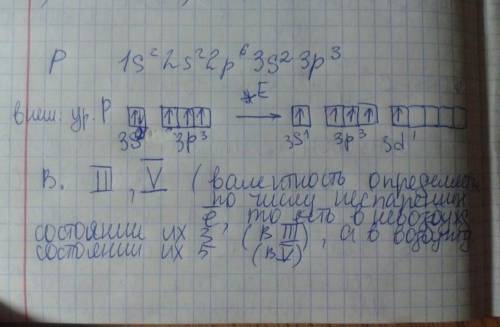 P 1s² 2s² 2p⁶ 3s² 3p³
внеш. ур. P ↑↓ ↑ ↑ ↑ → +E ↑ ↑ ↑ ↑ ↑
3s² 3p³ 3s¹ 3p³ 3d¹
В. III, V (валентность определяем
по числу неспаренных
ē, то есть в невозбужд
состоянии их 3 (В III), а в возбужд
состоянии их 5 (В V)